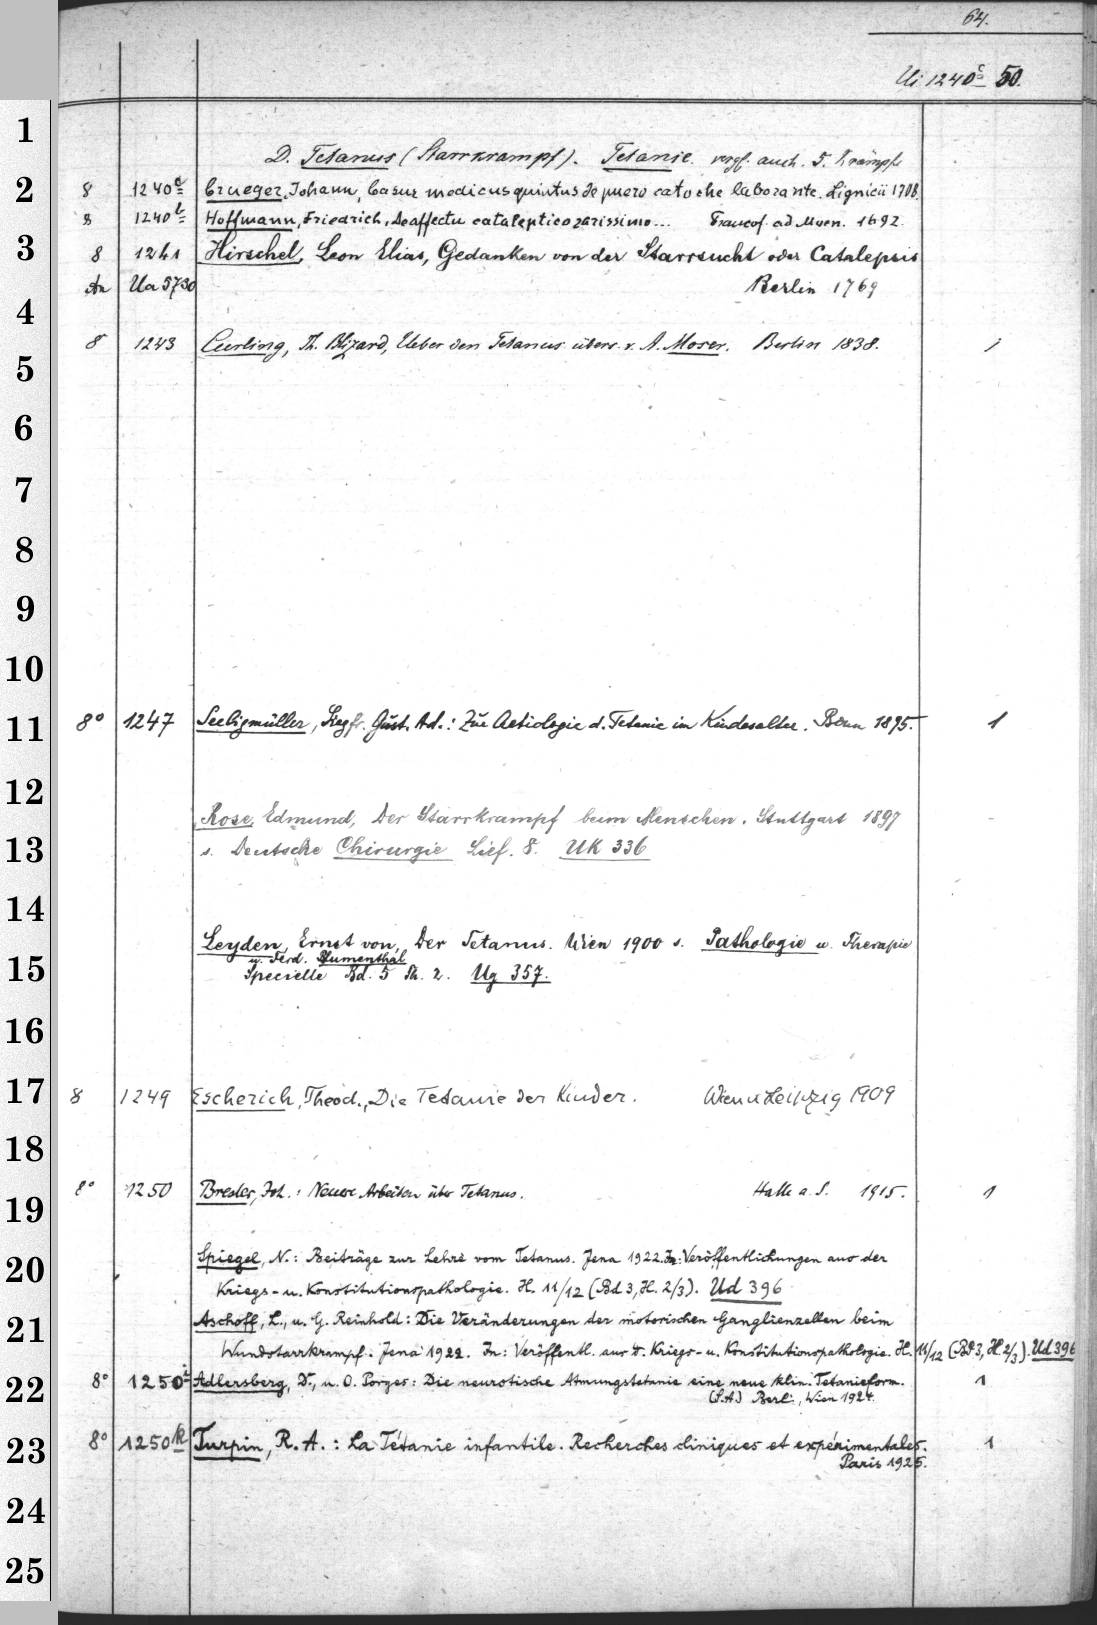 64.
Ui 1240c 50.
D. Tetanus (Starrkrampf). Tetanie. vergl. auch 5. Krämpfe
8 1240a Crueger, Johann, Casus medicus quintus de puero catoche laborante. Lignicii 1708.
8 1240b Hoffmann, Friedrich, De affectu cataleptico rarissimo... Francof. ad Moen. 1692.
8 1241 Hirschel, Leon Elias, Gedanken von der Starrsucht oder Catalepsis
An Ua 5730 Berlin 1769
8 1243 Curling, Th. Blizard, Ueber den Tetanus übers. v. A. Moser. Berlin 1838. 1
8° 1247 Seeligmüller, Siegfr. Gust. Ad.: Zur Aetiologie d. Tetanie im Kindesalter. Bonn 1895. 1
Rose, Edmund, Der Starrkrampf beim Menschen. Stuttgart 1897
s. Deutsche Chirurgie Lief. 8. UK 336
Leyden, Ernst von, Der Tetanus. Wien 1900 s. Pathologie u. Therapie
u. Ferd. Blumenthal
Specielle Bd. 5 Th. 2. Ug 357.
8 1249 Escherich, Theod., Die Tetanie der Kinder. Wien u Leipzig 1909
8° 1250 Bresler, Joh.: Neuere Arbeiten über Tetanus. Halle a. S. 1915. 1
Spiegel, N.: Beiträge zur Lehre vom Tetanus. Jena 1922. In: Veröffentlichungen aus der
Kriegs- u. Konstitutionspathologie. H. 11/12 (Bd 3, H. 2/3). Ud 396
Aschoff, L., u. G. Reinhold: Die Veränderungen der motorischen Ganglienzellen beim
Wundstarrkrampf. Jena 1922. In: Veröffentl. aus d. Kriegs- u. Konstitutionspathologie. H. 11/12 (Bd 3, H. 2/3). Ud 396
8° 1250i Adlersberg, D., u. O. Porges: Die neurotische Atmungstetanie eine neue klin. Tetanieform. 1
(S.A.) Berl., Wien 1924.
8° 1250k Turpin, R. A.: La Tétanie infantile. Recherches cliniques et expérimentales. 1
Paris 1925.
1
2
3
4
5
6
7
8
9
10
11
12
13
14
15
16
17
18
19
20
21
22
23
24
25